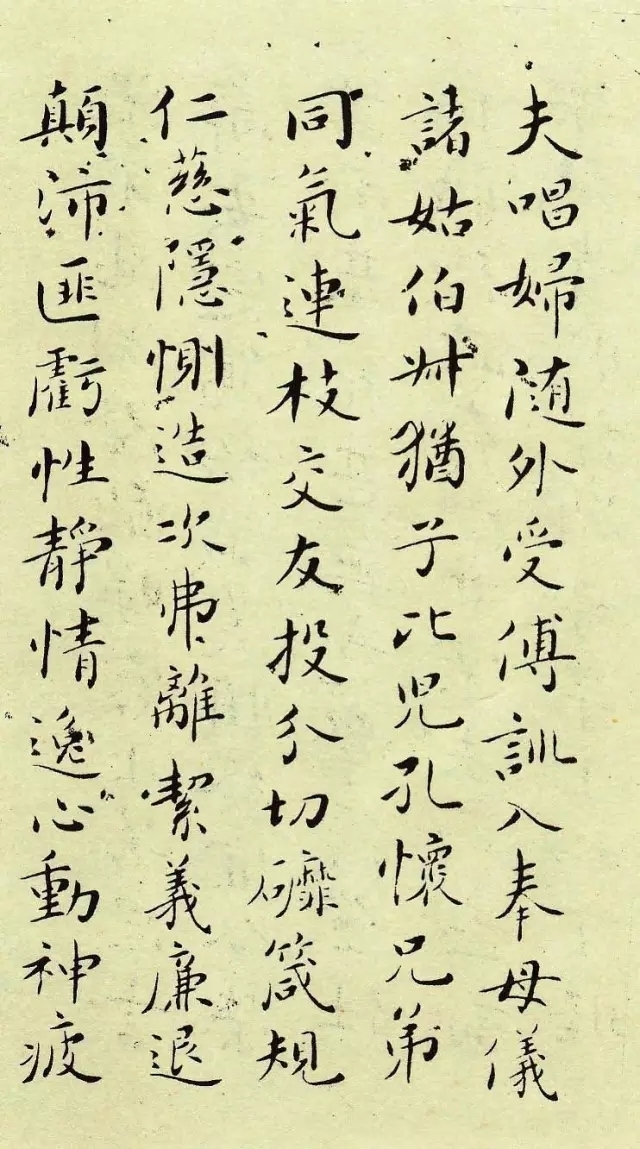 夫唱婦随外受傅訓入奉母儀
諸姑伯叔猶子比児孔懐兄弟
同氣連枝交友投分切磨箴規
仁慈隱惻造次弗離絜義廉退
顛沛匪虧性靜情逸心動神疲